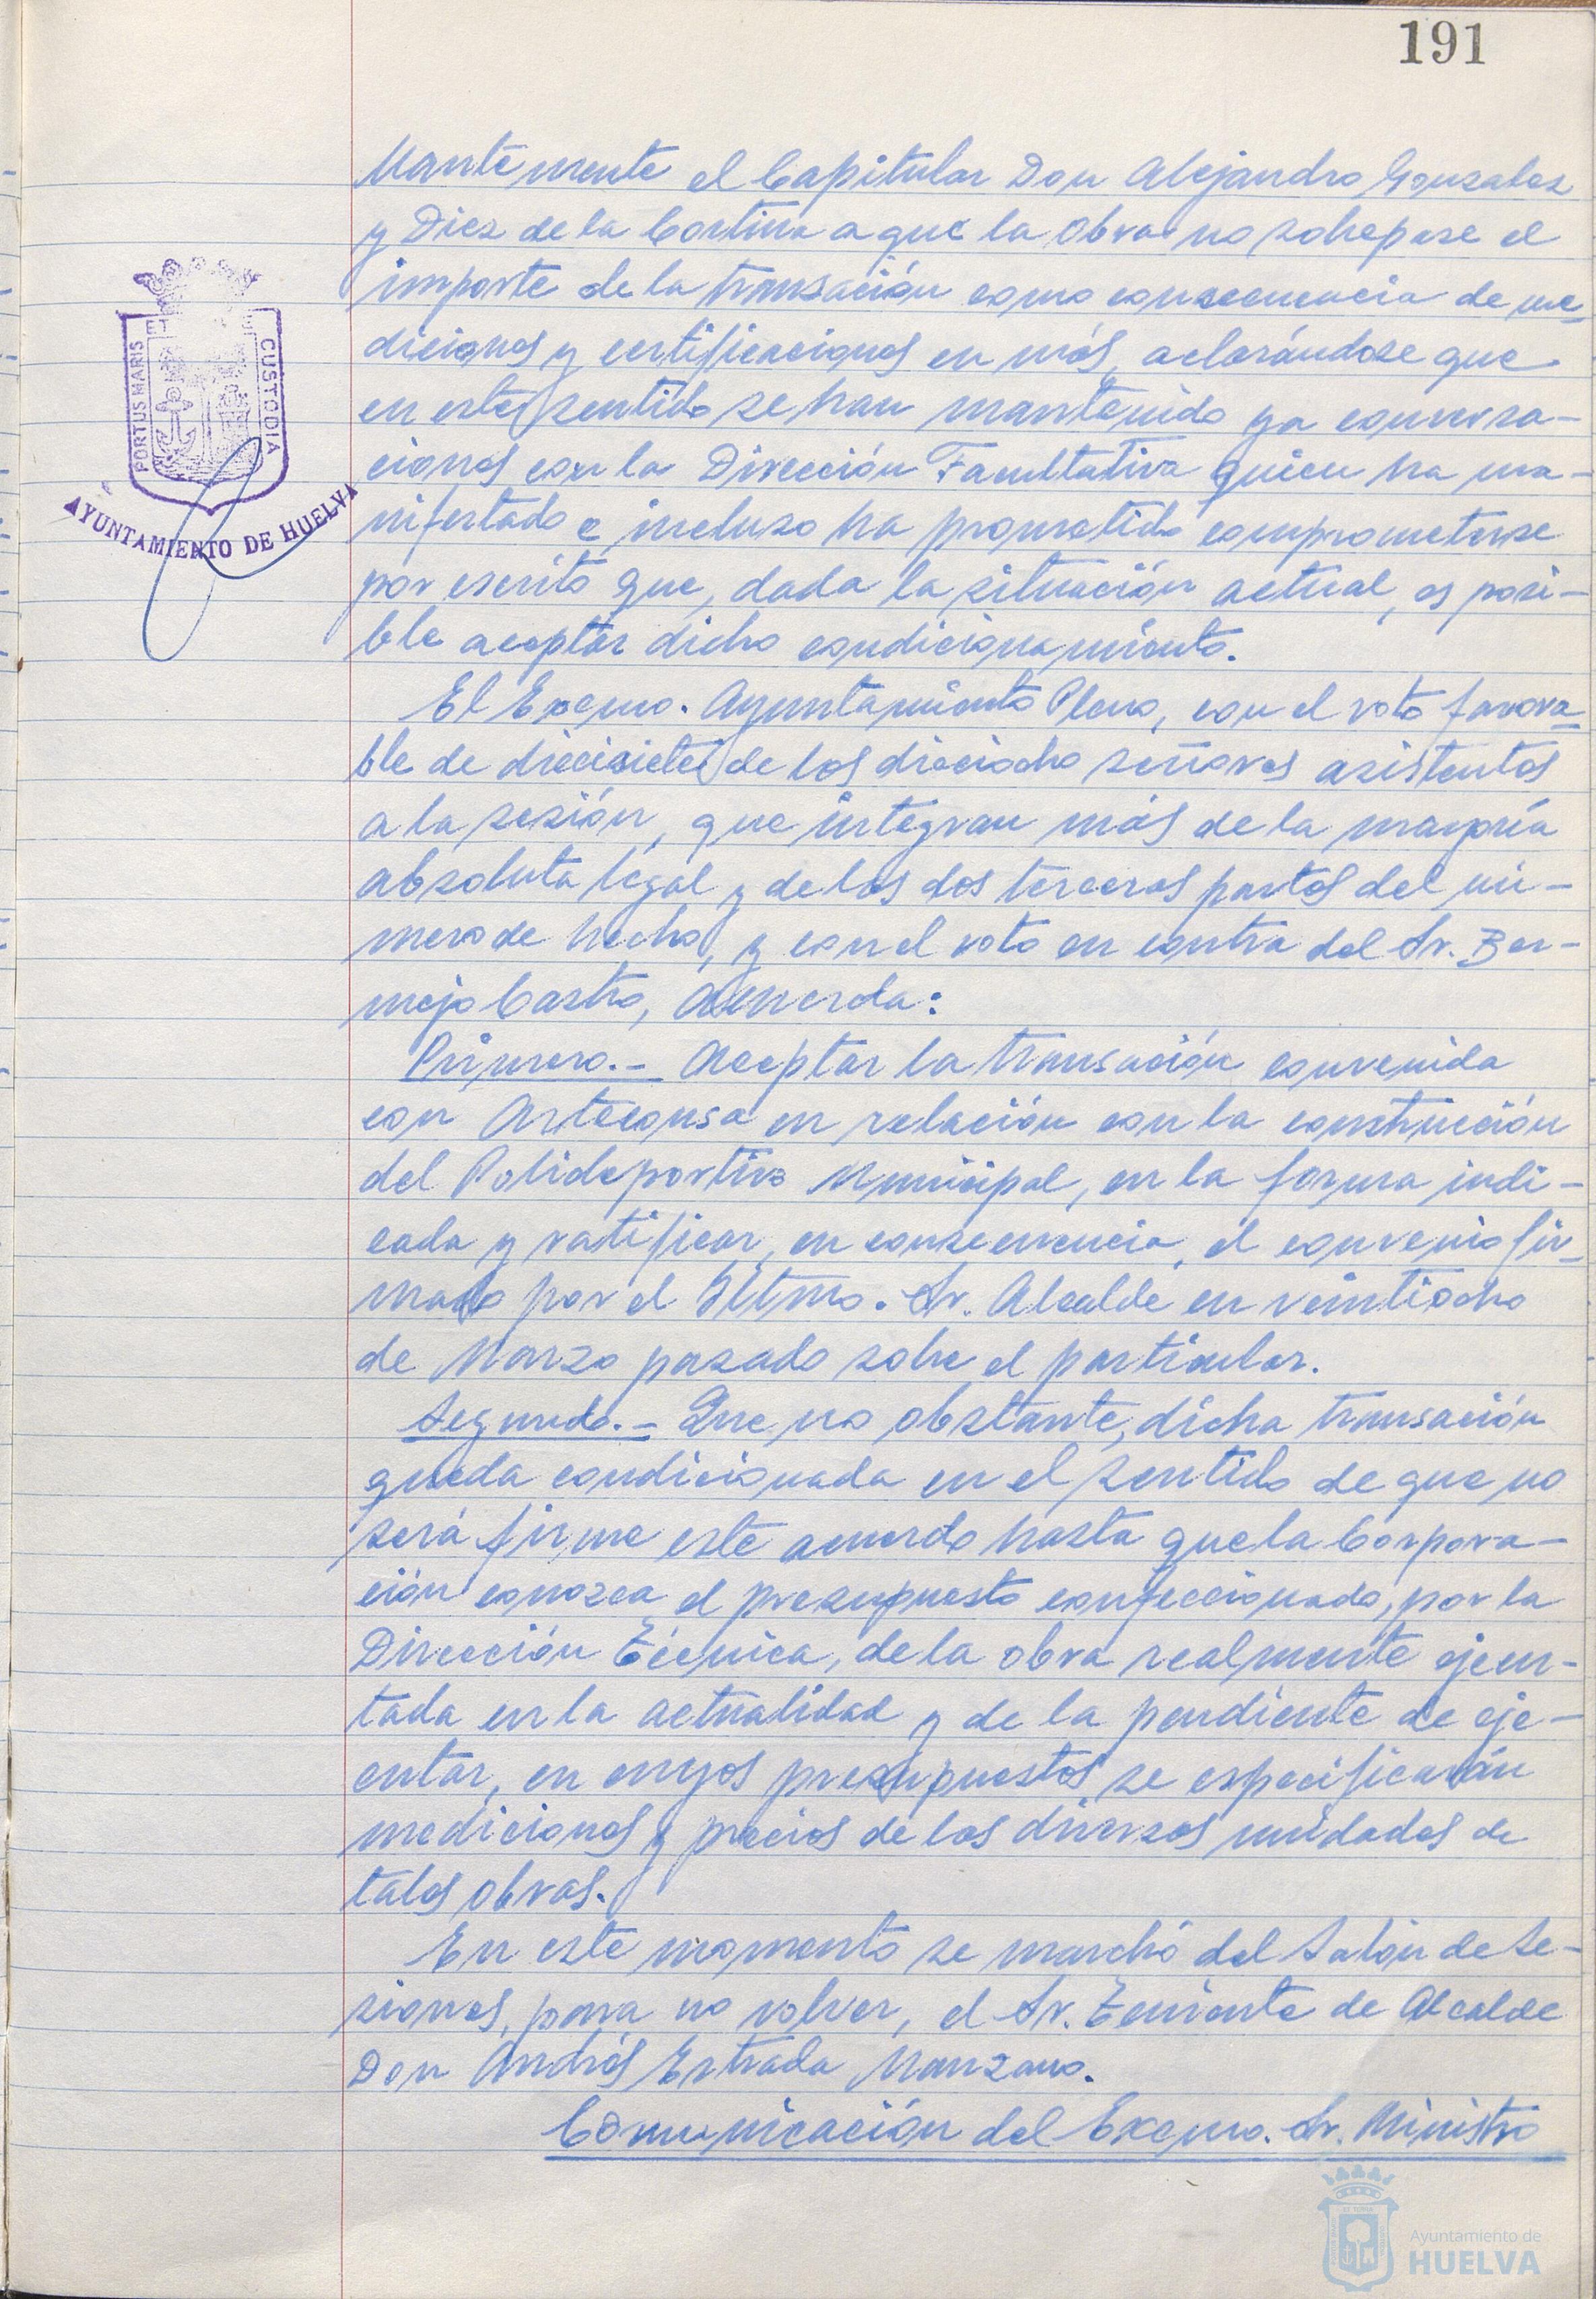 191
Mantemente el Capitular Don Alejandro Gonzalez
y Diez de la Cortina a que la obra no sobrepase el
importe de la transación como consecuencia de me-
diciones y certificaciones en más, aclarándose que
en este sentido se han mantenido ya conversa-
ciones con la Dirección Facultativa quien ha ma-
nifestado e incluso ha prometido comprometerse
por escrito que, dada la situación actual, es posi-
ble aceptar dicho condicionamiento.
El Excmo. Ayuntamiento Pleno, con el voto favora-
ble de diecisiete de los dieciocho señores asistentes
a la sesión, que integran más de la mayoría
absoluta legal y de las dos terceras partes del nú-
mero de hecho, y con el voto en contra del Sr. Ber-
mejo Castro, acuerda:
Primero.- Aceptar la transación convenida
con Arteconsa en relación con la construcción
del Polideportivo Municipal, en la forma indi-
cada y ratificar, en consecuencia, el convenio fir-
mado por el Iltmo. Sr. Alcalde en veintiocho
de Marzo pasado sobre el particular.
Segundo.- Que no obstante, dicha transación
queda condicionada en el sentido de que no
será firme este acuerdo hasta que la Corpora-
ción conozca el presupuesto confeccionado, por la
Dirección Técnica, de la obra realmente ejecu-
tada en la actualidad y de la pendiente de eje-
cutar, en cuyos presupuestos se especificarán
mediciones y precios de las diversas unidades de
tales obras.
En este momento se marchó del Salón de Se-
siones, para no volver, el Sr. Teniente de Alcalde
Don Andrés Estrada Manzano.
Comunicación del Excmo. Sr. Ministro
PORTUS MARIS ET CUSTORDIA
AYUNTAMIENTO DE HUELVA
Ayuntamiento de
HUELVA